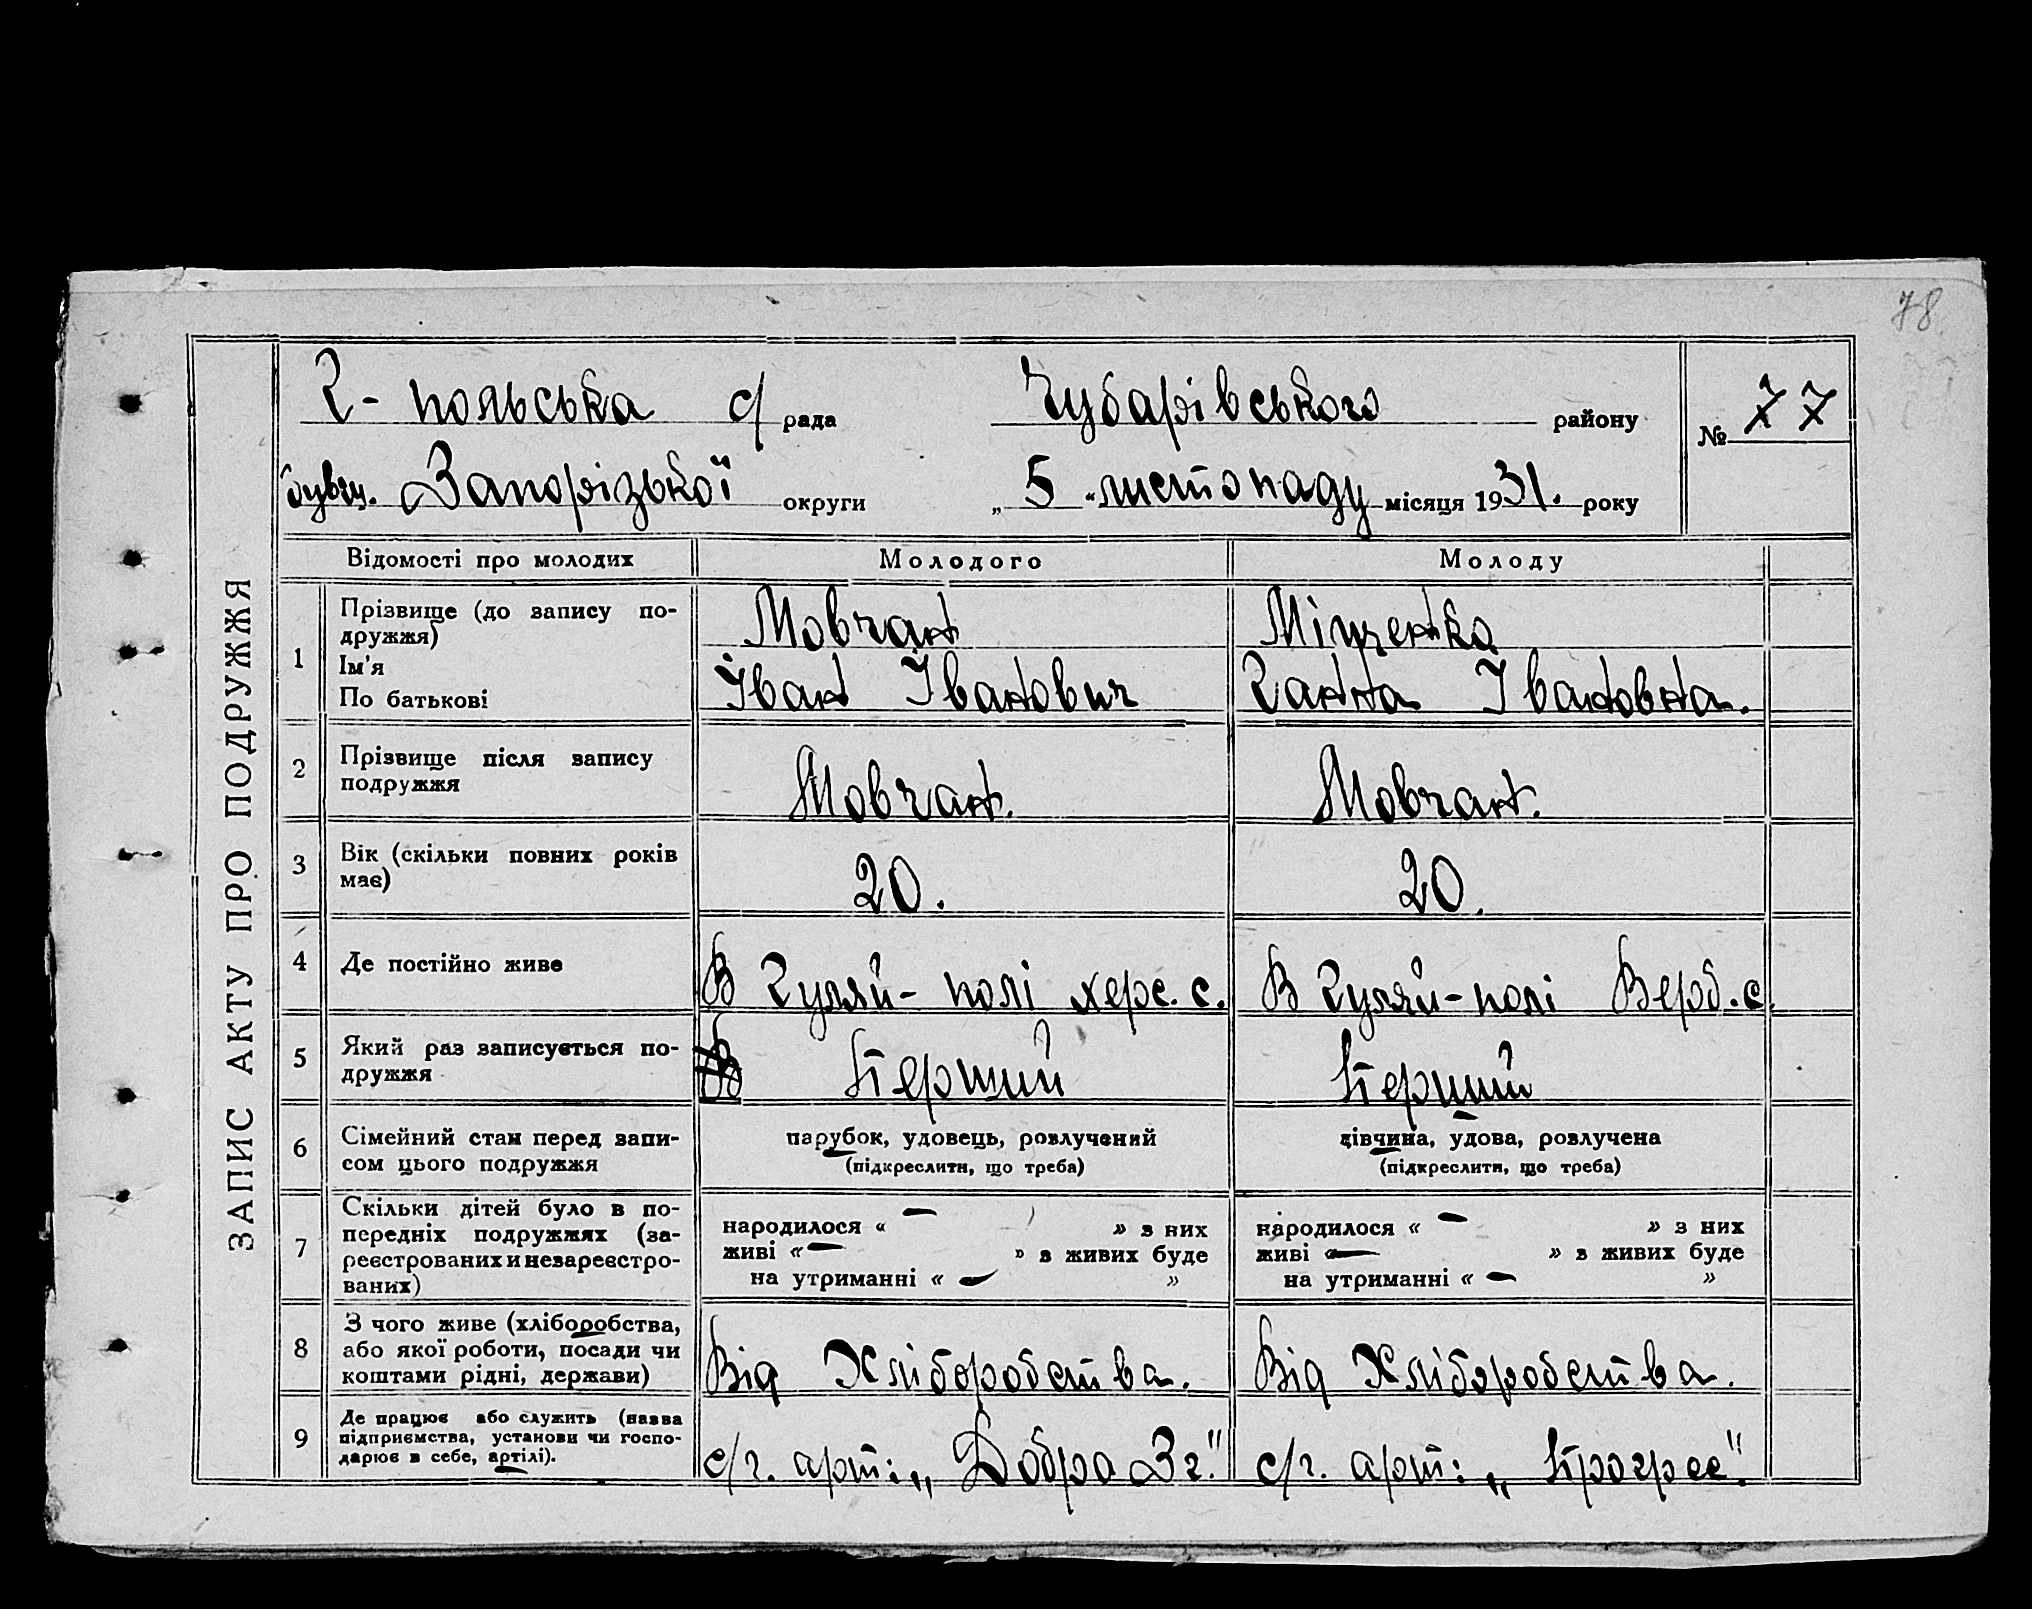 78
Г- польська с/рада Чубарівського району № 77
бувш. Запорізької округи „ 5 “ листопаду місяця 1931. року
ЗАПИС АКТУ ПРО ПОДРУЖЖЯ
Відомості про молодих Молодого Молоду
1 Прізвище (до запису по-
дружжя) Мовчан Міщенко
Ім'я
По батькові Іван Іванович Ганна Івановна.
2 Прізвище після запису
подружжя Мовчан. Мовчан.
3 Вік (скільки повних років
має) 20. 20.
4 Де постійно живе В Гуляй-полі херс. с. В Гуляй-полі Верб. с.
5 Який раз записується по-
дружжя Перший Перший
6 Сімейний стан перед запи-
сом цього подружжя
парубок, удовець, розлучений
(підкреслити, що треба)
дівчина, удова, розлучена
(підкреслити, що треба)
7 Скільки дітей було в по-
передніх подружжях (за-
реєстрованих и незареєстро-
ваних)
народилося « — » з них
живі « — » з живих буде
на утриманні « — »
народилося « — » з них
живі « — » з живих буде
на утриманні « — »
8 З чого живе (хліборобства,
або якої роботи, посади чи
коштами рідні, держави)
Від Хліборобства. Від Хліборобства.
9 Де працює або служить (назва
підприємства, установи чи госпо-
дарює в себе, артілі).
с/г. арт: „ Добра Зг." с/г. арт: „ Прогрес".